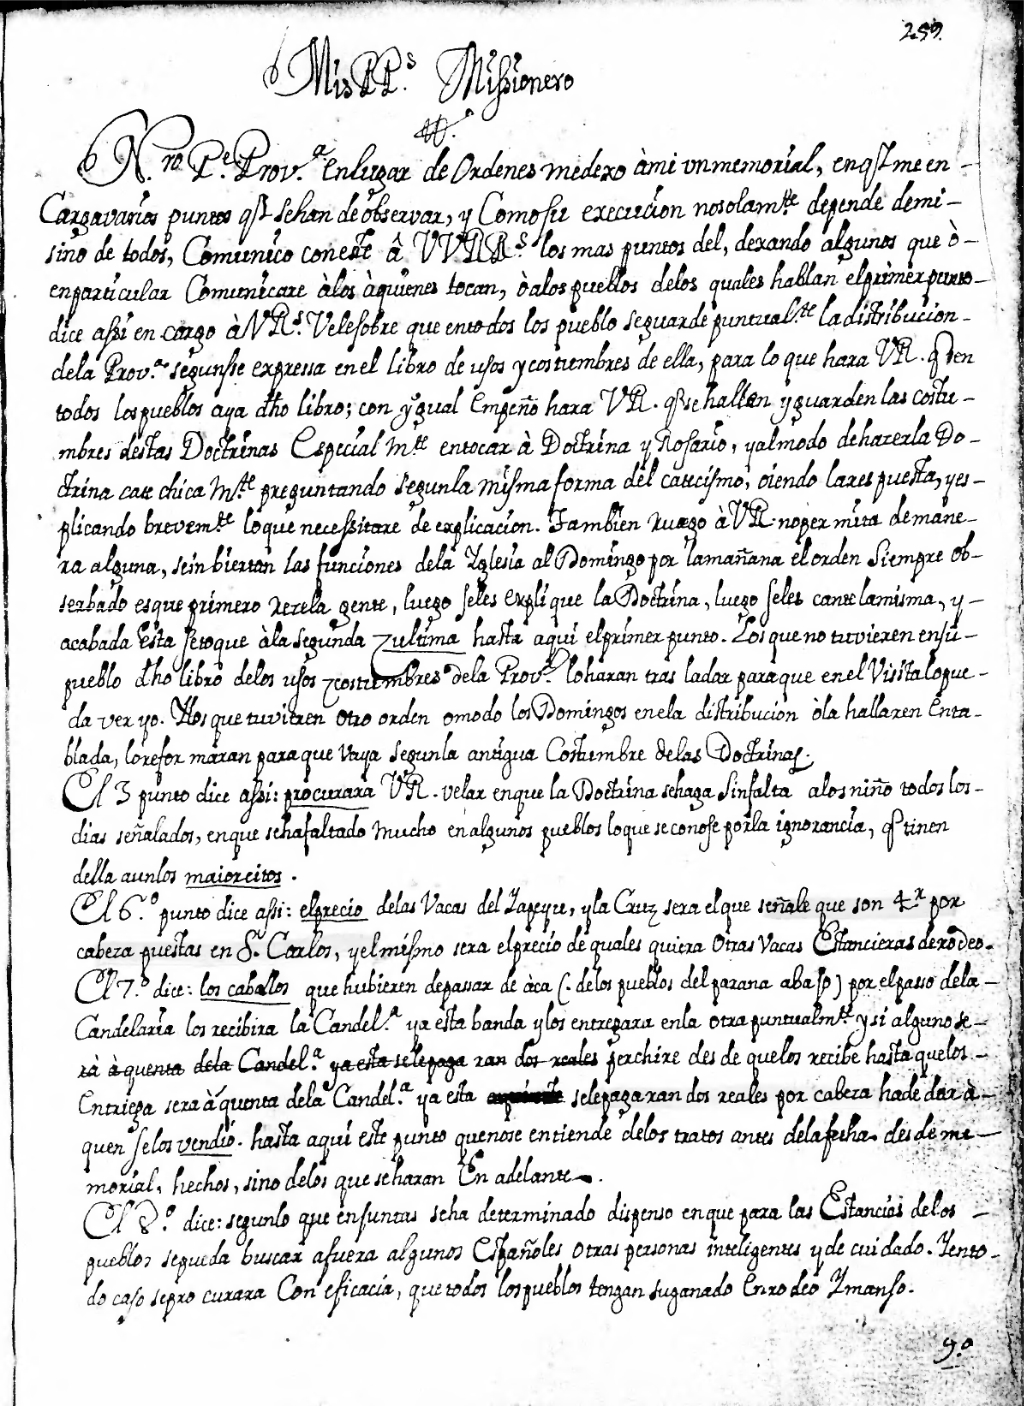 259.
Mis PP.s Missionero
N.ro P.e Prov.a en lugar de Ordenes me dexo à mi un memorial, en q̃ me en-
Cargava varios puntos q̃ se han de observar, y Como su execucion no solam.te depende de mi-
sino de todos, Comunico con este â VVRR.s los mas puntos del, dexando algunos que ò-
en particular Comunicare à los à quienes tocan, ò a los pueblos de los quales hablan el primer punto-
dice assi en cargo à VR.s Vele sobre que en todos los pueblo se guarde puntual.te la distribucion-
de la Prov.a segun se expressa en el libro de usos y costumbres de ella, para lo que hara VR. q̃ en
todos los pueblos aya dho libro; con ygual Empeño hara VR. q̃ se hallen y guarden las costu-
mbres destas Doctrinas Especial M.te en tocar à Doctrina y Rosario, y al modo de hazer la Do-
ctrina cate chica M.te preguntando segun la misma forma del catecismo, oiendo la respuesta, y es-
plicando brevem.te lo que necessitare de explicacion. Tambien ruego à VR no per mita de mane-
ra alguna, se in biertan las funciones de la Yglesia al Domingo por la mañana el orden Siempre ob-
serbado es que primero reze la gente, luego se les expli que la Doctrina, luego se les cante la misma, y-
acabada esta se toque à la segunda y ultima hasta aqui el primer punto. Los que no tuvieren en su-
pueblo dho libro de los usos y costumbres de la Prov.a lo haran tras ladar para que en el Visita lo pue-
da ver yo. Y los que tuvieren otro orden o modo los Domingos en la distribucion ò la hallaren Enta-
blada, lo refor maran para que vaya segun la antigua Costumbre de las Doctrinas.
El 3 punto dice assi: procurara VR. velar en que la Doctrina se haga sin falta a los niño todos los-
dias señalados, en que se ha faltado mucho en algunos pueblos lo que se conose por la ignorancia, q̃ tinen
della aun los maiorcitos.
El 6.o punto dice assi: el precio de las Vacas del Yapeyu, y la Cruz sera el que señale que son 4.r por
cabeza puestas en S. Carlos, y el mismo sera el precio de quales quiera otras Vacas Estancieras de rodeo.
El 7.o dice: los caballos que hubieren de passar de àca (. de los pueblos del parana abaso) por el passo de la-
Candelaria los recibira la Candel.a ya esta banda y los entregara en la otra puntualm.te y si alguno se-
rà à quenta dela Candel.a ya esta se le paga ran dos reales perchire des de que los recibe hasta que los-
Entriega sera à quenta de la Candel.a ya esta se le paga ran dos reales por cabeza ha de dar à-
quen se los vendio. hasta aqui este punto que no se entiende de los tratos antes de la fecha deste me-
morial, hechos, sino de los que se haran En adelante.
El 8.o dice: segun lo que en Juntas se ha determinado dispenso en que para las Estancias de los-
pueblos se pueda buscar afuera algunos Españoles otras personas inteligentes y de cuidado. Y en to-
do caso se pro curara Con eficacia, que todos los pueblos tengan su ganado En rodeo Y manso.
9.o